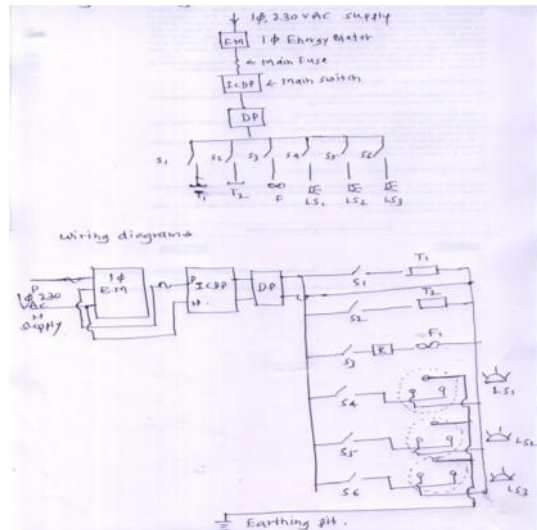 1ϕ, 230 VAC supply
EM 1ϕ Energy Meter
Main Fuse
ICDP Main switch
DP
S1 S2 S3 S4 S5 S6
T1 T2 F LS1 LS2 LS3
Wiring diagram
P
1ϕ, 230
VAC
N
supply
1ϕ
E.M
P
ICDP
N.
DP
S1 T1
S2 T2
S3 R F1
S4 LS1
S5 LS2
S6 LS3
Earthing pit.